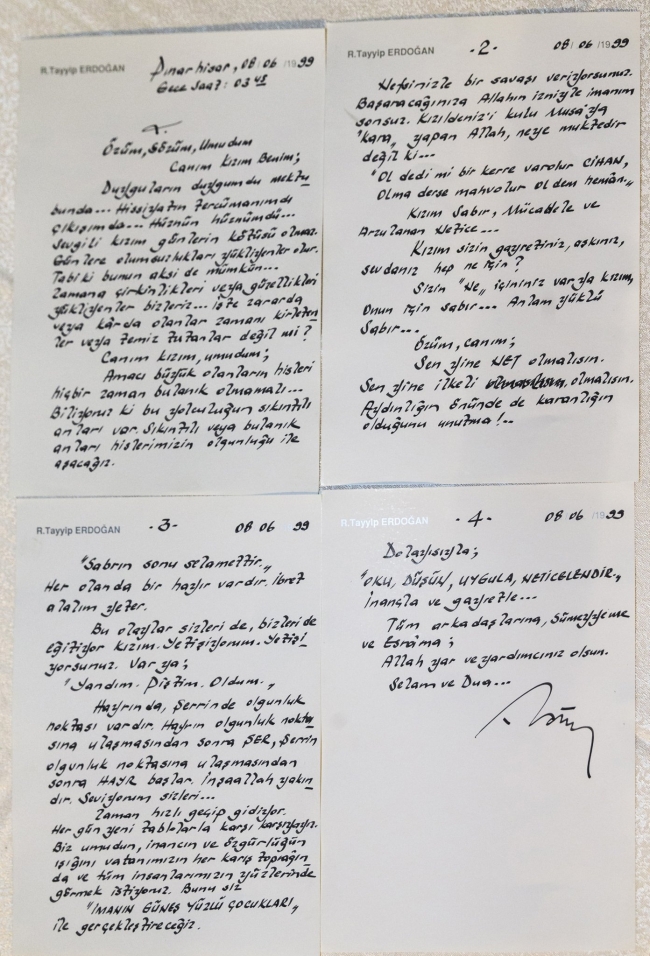 R.Tayyip ERDOĞAN
Pınarhisar, 08/06/1999
Gece Saat: 03 45
Özüm, Sözüm, Umudum
Canım Kızım Benim;
Duyguların duygumdu mektu
bunda... Hissiyatın tercümanımdı
çıkışımda... Hüznün hüznümdü...
Sevgili kızım günlerin kötüsü olmaz.
Günlere olumsuzlukları yükliyenler olur.
Tabiki bunun aksi de mümkün...
Zamana çirkinlikleri veya güzellikleri
yükliyenler bizleriz... İşte zararda
veya kârda olanlar zamanı kirleten
ler veya temiz tutanlar değil mi?
Canım kızım, umudum;
Amacı büyük olanların hisleri
hiçbir zaman bulanık olmamalı...
Biliyoruz ki bu yolculuğun sıkıntılı
an'ları var. Sıkıntılı veya bulanık
an'ları hislerimizin olgunluğu ile
aşacağız.
R.Tayyip ERDOĞAN -2- 08/06/1999
Nefsinizle bir savaşı veriyorsunuz.
Başaracağınıza Allahın izniyle imanım
sonsuz. Kızıldeniz'i kulu Musa'ya
"kara" yapan Allah, neye muktedir
değil ki...
"Ol dedi mi bir kerre varolur CİHAN,
Olma derse mahvolur ol dem hemân."
Kızım Sabır, Mücadele ve
Arzulanan Netice...
Kızım sizin gayretiniz, aşkınız,
sevdanız hep ne için?
Sizin "Ne" içininiz varya kızım,
Onun için sabır... Anlam yüklü
Sabır...
Özüm, canım;
Sen yine NET olmalısın.
Sen yine ilkeli olmalısın.
Aydınlığın önünde de karanlığın
olduğunu unutma!..
R.Tayyip ERDOĞAN -3- 08 06 99
"Sabrın sonu selamettir."
Her olanda bir hayır vardır. İbret
alalım yeter.
Bu olaylar sizleri de, bizleri de
eğitiyor kızım. Yetişiyorum. Yetişi
yorsunuz. Var ya;
"Yandım. Piştim. Oldum."
Hayrında, Şerrinde olgunluk
noktası vardır. Hayrın olgunluk nokta
sına ulaşmasından sonra ŞER, Şerrin
olgunluk noktasına ulaşmasından
sonra HAYR başlar. İnşaallah yakın
dır. Seviyorum sizleri...
Zaman hızlı geçip gidiyor.
Her gün yeni tablolarla karşı karşıyayız.
Biz umudun, inancın ve özgürlüğün
ışığını vatanımızın her karış toprağın
da ve tüm insanlarımızın yüzlerinde
görmek istiyoruz. Bunu siz
"İMANIN GÜNEŞ YÜZLÜ ÇOCUKLARI"
ile gerçekleştireceğiz.
R.Tayyip ERDOĞAN -4- 08 06 /1999
Dolayısıyla;
"OKU, DÜŞÜN, UYGULA, NETİCELENDİR."
İnançla ve gayretle...
Tüm arkadaşlarına, Sümeyyeme
ve Esrâma;
Allah yar ve yardımcınız olsun.
Selam ve Dua...